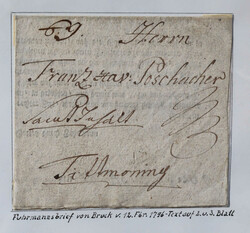 69. Herrn
Franz Xav: Poschacher
samt Inhalt
Tittmoning
Fuhrmannsbrief von Bruck v. 12. Jän. 1796 - Text auf 2. u. 3. Blatt